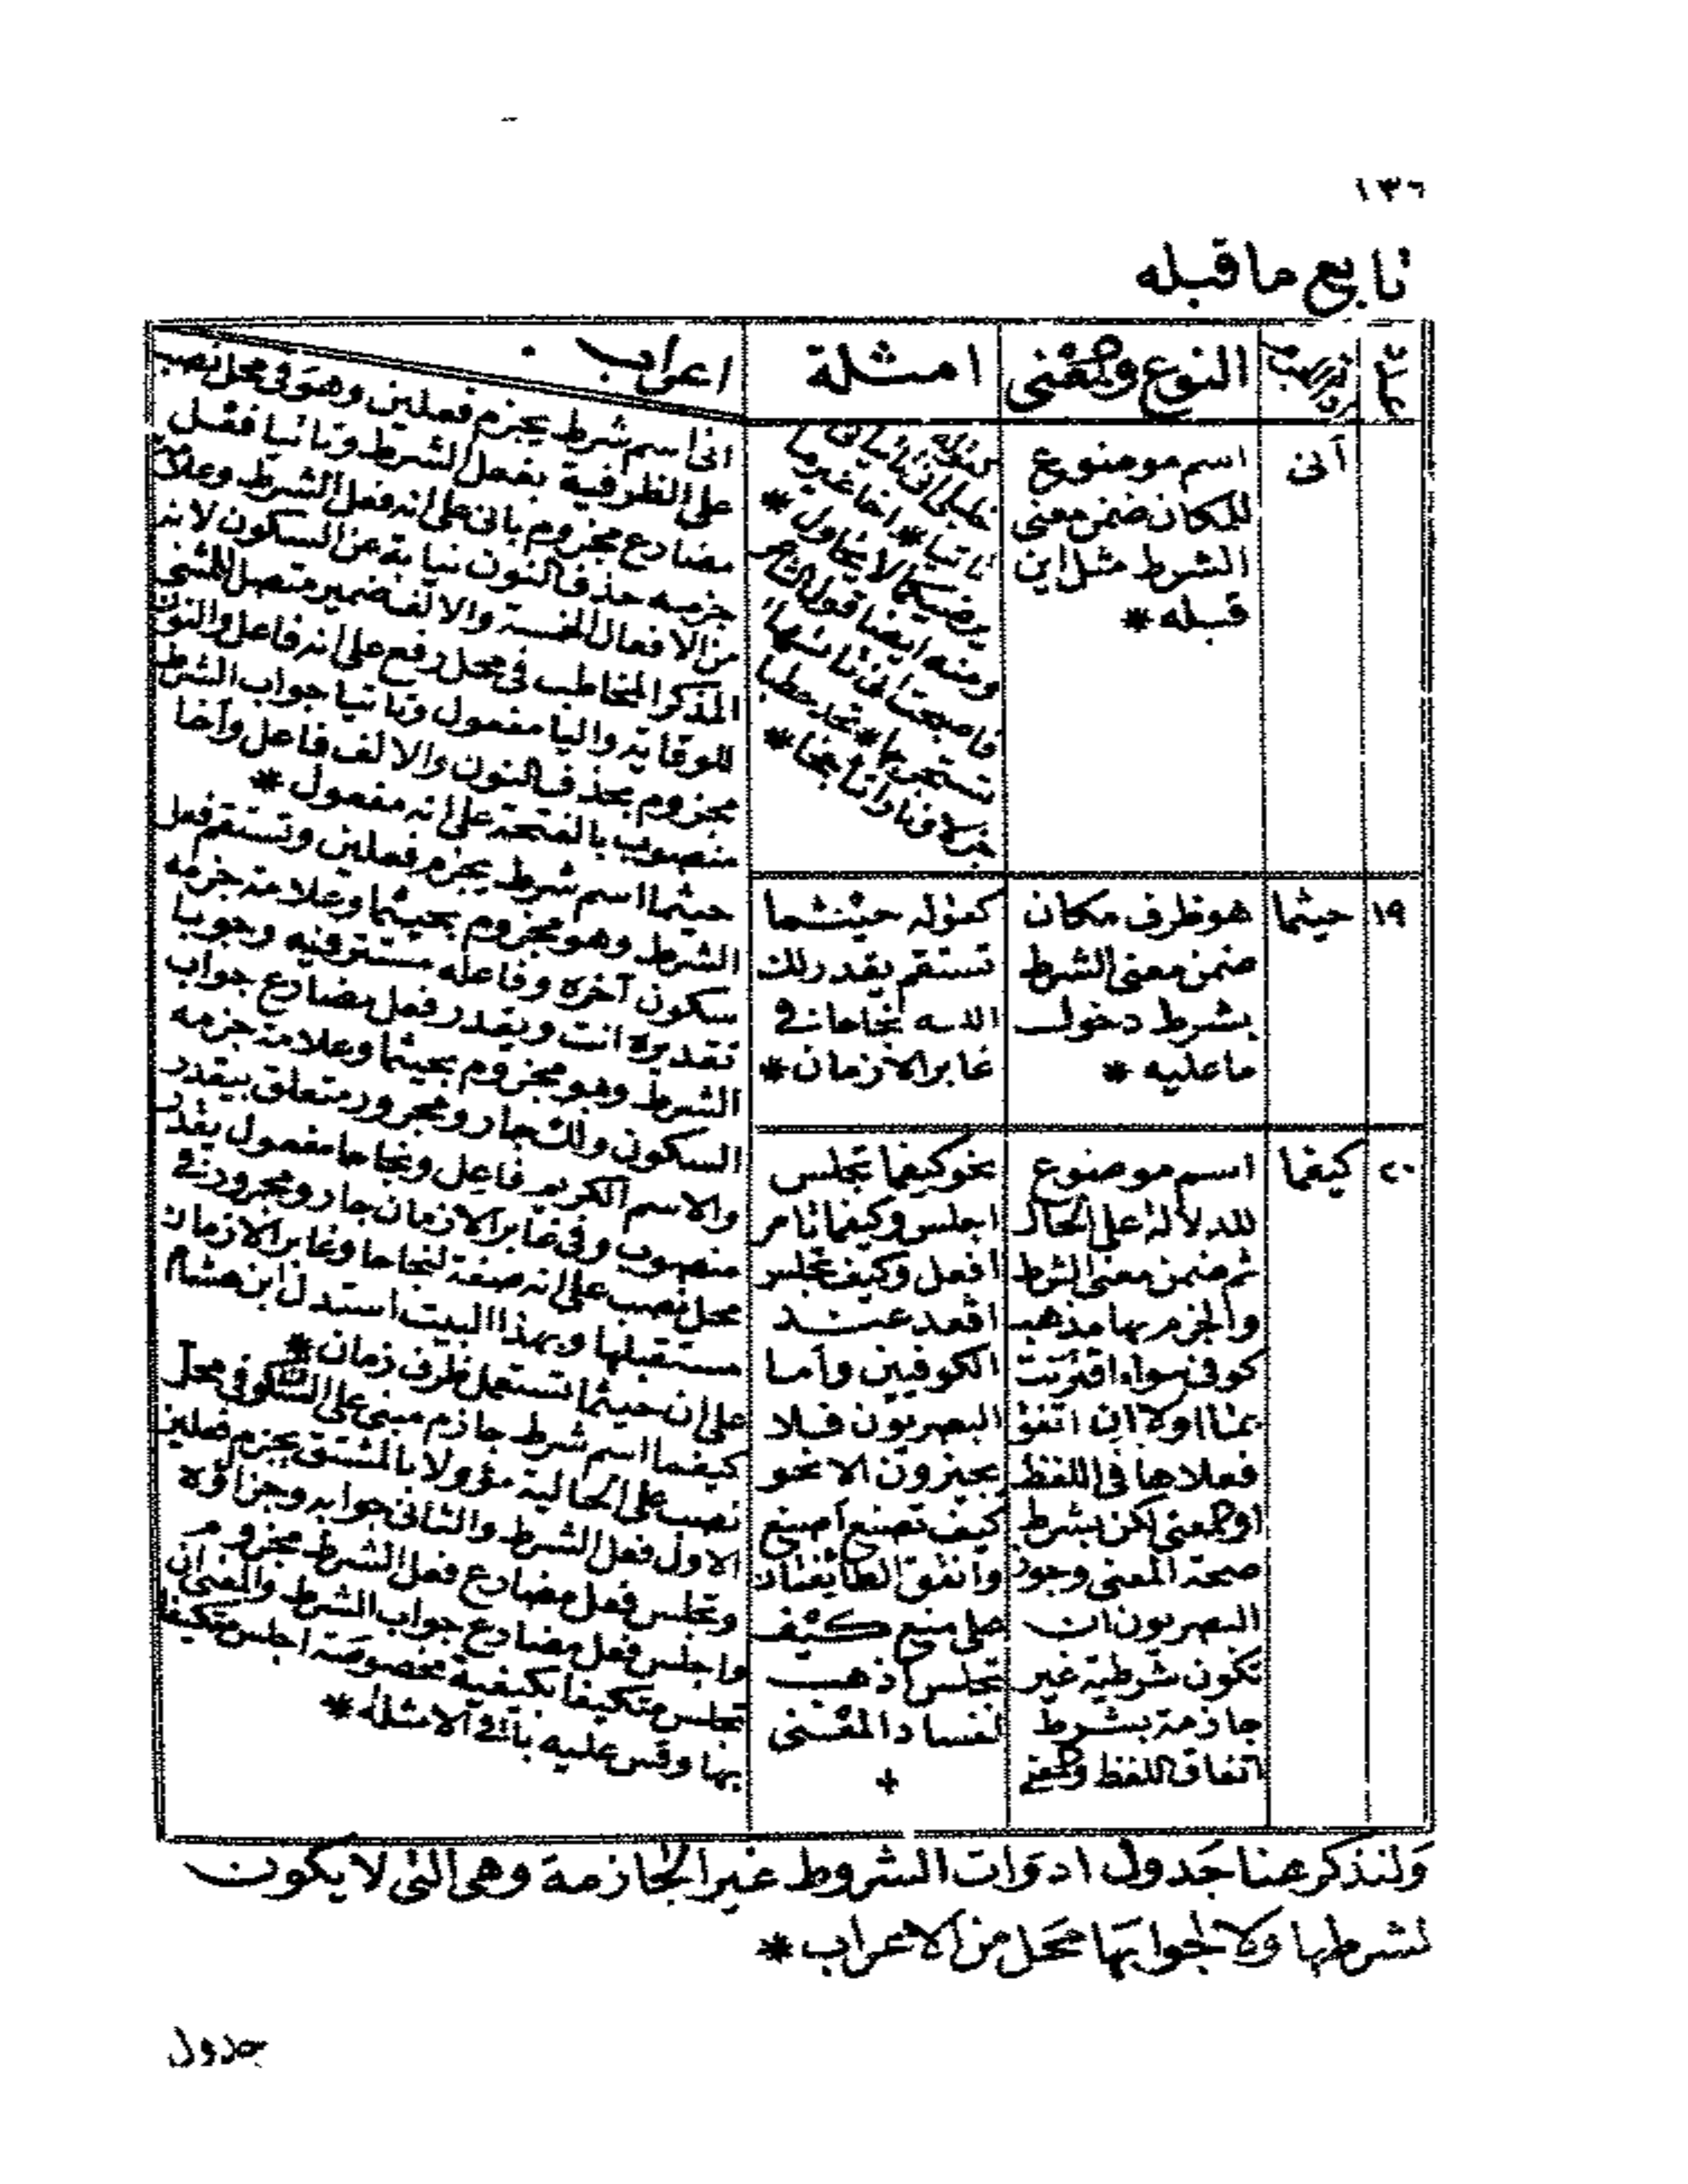 ١٣٦
تابع ما قبله
عدد
النوع ومعنى
امثلة
اعراب
أنى
اسم موضوع
للمكان ضمن معنى
الشرط مثل اين
قبله *
خليلى انى تاتيانى
تاتيا * اخا غير ما
يرضيكما لا يحاول *
ومنه ايضا قول الشاعر
فاصبحت انى تاتها
تستجر بها * تجد حطبا
جزلا ونارا تاججا *
انى اسم شرط يجزم فعلين وهو فى محل نصب
على الظرفية بفعل الشرط وتاتيا فعل
مضارع مجزوم بانى على انه فعل الشرط وعلامة
جزمه حذف النون نيابة عن السكون لانه
من الافعال الخمسة والالف ضمير متصل للمثنى
المذكر المخاطب فى محل رفع على انه فاعل والنون
للوقاية واليا مفعول وتاتيا جواب الشرط
مجزوم بحذف النون والالف فاعل واخا
منصوب بالفتحة على انه مفعول *
١٩
حيثما
هو ظرف مكان
ضمن معنى الشرط
بشرط دخول
ما عليه *
كقوله حيثما
تستقم يقدر لك
الله نجاحا فى
غابر الازمان *
حيثما اسم شرط يجزم فعلين وتستقم فعل
الشرط وهو مجزوم بحيثما وعلامة جزمه
سكون آخره وفاعله مستتر فيه وجوبا
تقديره انت ويقدر فعل مضارع جواب
الشرط وهو مجزوم بحيثما وعلامة جزمه
السكون ولك جار ومجرور متعلق بيقدر
والاسم الكريم فاعل ونجاحا مفعول يقدر
منصوب وفى غابر الازمان جار ومجرور فى
محل نصب على انه صفة لنجاحا وغابر الازمان
مستقبلها وبهذا البيت استدل ابن هشام
على ان حيثما تستعمل ظرف زمان *
٢٠
كيفما
اسم موضوع
للدلالة على الحال
ثم ضمن معنى الشرط
والجزم بها مذهب
كوفى سواء اقترنت
بما اولا ان اتفق
فعلاها فى اللفظ
او المعنى لكن بشرط
صحة المعنى وجوز
البصريون ان
تكون شرطية غير
جازمة بشرط
اتفاق اللفظ والمعنى
نحو كيفما تجلس
اجلس وكيفما تامر
افعل وكيف تجلس
اقعد عند
الكوفيين واما
البصريون فلا
يجيزون الا نحو
كيف تصنع اصنع
واتفق الطايفتان
على منع كيف
تجلس اذهب
لفساد المعنى
+
كيفما اسم شرط جازم مبنى على السكون فى محل
نصب على الحالية مؤولا بالمشتق يجزم فعلين
الاول فعل الشرط والثانى جوابه وجزاؤه
وتجلس فعل مضارع فعل الشرط مجزوم
واجلس فعل مضارع جواب الشرط والمعنى ان
تجلس متكيفا بكيفية مخصوصة اجلس متكيفا
بها وقس عليه باقى الامثلة *
ولنذكر هنا جَدول ادوات الشروط غير الجازمة وهى التى لا يكون
لشرطها ولا لجوابها محَل من الاعراب *
جدول